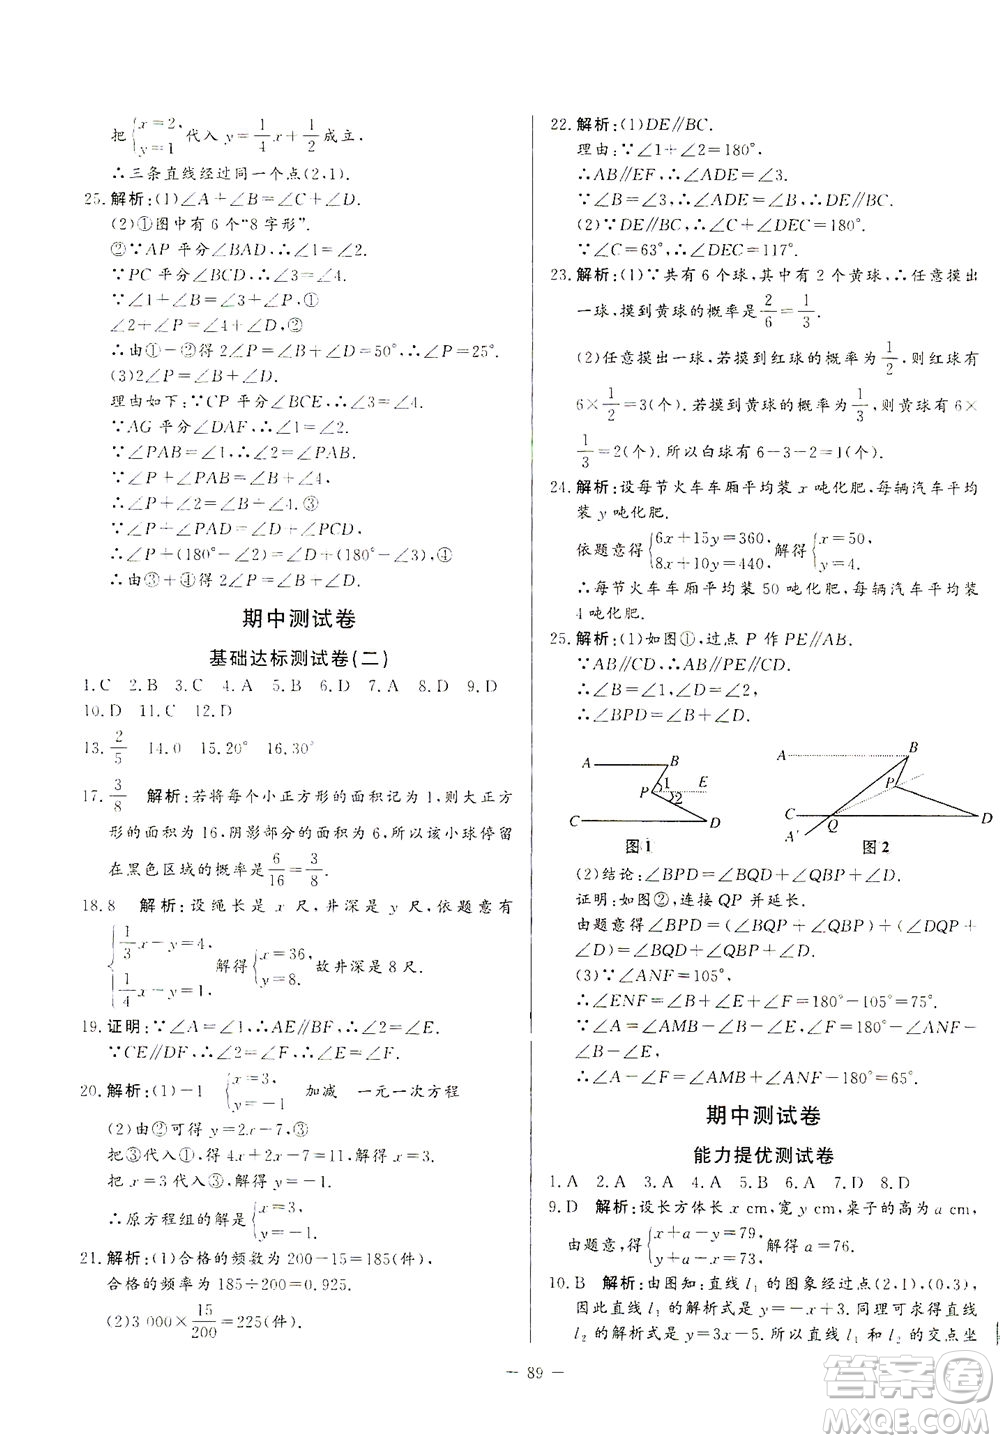 把{x=2, y=1代入 y=1/4x+1/2成立.
∴三条直线经过同一个点(2,1).
25.解析:(1)∠A+∠B=∠C+∠D.
(2)①图中有 6 个“8 字形”.
②∵AP 平分∠BAD,∴∠1=∠2.
∵PC 平分∠BCD,∴∠3=∠4.
∵∠1+∠B=∠3+∠P,①
∠2+∠P=∠4+∠D,②
∴由①-②得 2∠P=∠B+∠D=50°,∴∠P=25°.
(3)2∠P=∠B+∠D.
理由如下:∵CP 平分∠BCE,∴∠3=∠4.
∵AG 平分∠DAF,∴∠1=∠2.
∵∠PAB=∠1,∴∠2=∠PAB.
∵∠P+∠PAB=∠B+∠4,
∴∠P+∠2=∠B+∠4,③
∵∠P+∠PAD=∠D+∠PCD,
∴∠P+(180°-∠2)=∠D+(180°-∠4),④
∴由③+④得 2∠P=∠B+∠D.
期中测试卷
基础达标测试卷(二)
1.C 2.B 3.C 4.A 6.B 7.A 8.D 9.D
10.D 11.C 12.D
13.2/5 14.0 15.20° 16.30°
17.3/8 解析:若将每个小正方形的面积记为 1,则大正方
形的面积为 16,阴影部分的面积为 6,所以该小球停留
在黑色区域的概率是6/16=3/8.
18.8 解析:设绳长是 x 尺,井深是 y 尺,依题意有
{1/3x-y=4, 1/4x-y=1, 解得{x=36, y=8. 故井深是 8 尺.
19.证明:∵∠A=∠1,∴AE∥BF,∴∠2=∠E.
∵CE∥DF,∴∠2=∠F,∴∠E=∠F.
20.解析:(1)-1 {x=3, y=-1 加减 一元一次方程
(2)由②可得 y=2x-7,③
把③代入①,得 4x+2x-7=11,解得 x=3.
把 x=3 代入③,得 y=6-7=-1.
∴原方程组的解是{x=3, y=-1.
21.解析:(1)合格的频数为 200-15=185(件),
合格的频率为 185÷200=0.925.
(2)3 000×15/200=225(件).
22.解析:(1)DE∥BC.
理由:∵∠1+∠2=180°,
∴AB∥EF,∴∠ADE=∠3.
∵∠B=∠3,∴∠ADE=∠B,∴DE∥BC.
(2)∵DE∥BC,∴∠C+∠DEC=180°.
∵∠C=63°,∴∠DEC=117°.
23.解析:(1)∵共有 6 个球,其中有 2 个黄球,∴任意摸出
一球,摸到黄球的概率是2/6=1/3.
(2)任意摸出一球,若摸到红球的概率为1/2,则红球有
6×1/2=3(个).若摸到黄球的概率为1/3,则黄球有 6×
1/3=2(个).所以白球有 6-3-2=1(个).
24.解析:设每节火车车厢平均装 x 吨化肥,每辆汽车平均
装 y 吨化肥.
依题意得{6x+15y=360, 8x+10y=440, 解得{x=50, y=4.
∴每节火车车厢平均装 50 吨化肥,每辆汽车平均装
4 吨化肥.
25.解析:(1)如图①,过点 P 作 PE∥AB.
∵AB∥CD,∴AB∥PE∥CD.
∴∠B=∠1,∠D=∠2,
∴∠BPD=∠B+∠D.
A B 1 E P 2 C D 图1
A B P C Q D A′ 图2
(2)结论:∠BPD=∠BQD+∠B+∠D.
证明:如图②,连接 QP 并延长.
由题意得∠BPD=(∠BQP+∠B)+(∠DQP+
∠D)=∠BQD+∠B+∠D.
(3)∵∠ANF=105°,
∴∠ENF=∠B+∠E+∠F=180°-105°=75°.
∵∠A=∠AMB-∠B-∠E,∠F=180°-∠ANF-
∠B-∠E,
∴∠A-∠F=∠AMB+∠ANF-180°=65°.
期中测试卷
能力提优测试卷
1.A 2.A 3.A 4.A 5.B 6.D 7.D 8.D
9.D 解析:设长方体长 x cm,宽 y cm,桌子的高为 a cm,
由题意,得{x+a-y=79, y+a-x=73, 解得 a=76.
10.B 解析:由图知:直线 l₁ 的图象经过点(2,1),(0,3),
因此直线 l₁ 的解析式是 y=-x+3.同理可求得直线
l₂ 的解析式是 y=3x-5.所以直线 l₁ 和 l₂ 的交点坐
－ 89 －
答案圈
MXQE.COM